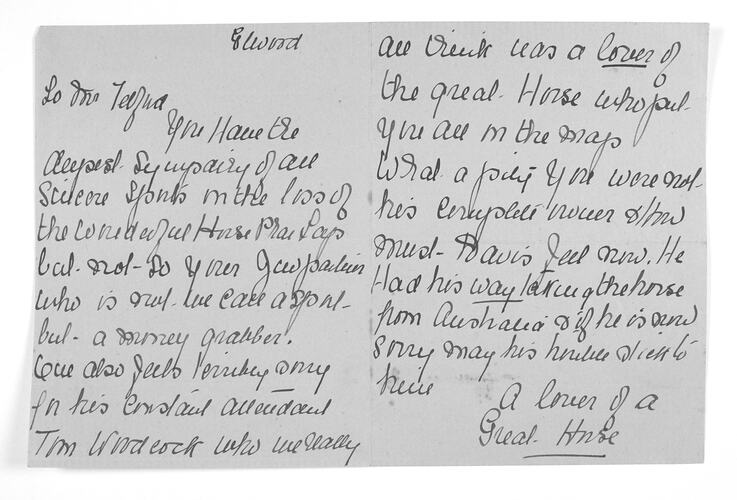 Elwood
To Mr Telford
You Have the
deepest sympathy of all
sincere sports in the loss of
the wonderful Horse Phar Lap
but not so your
who is not we call a sport
but a money grabber.
One also feels terribly sorry
for his constant attendant
Tom Woodcock who we really
all think was a lover of
the great Horse who put
you all on the map
What a pity you were not
his complete owner & How
must Davis feel now. He
Had his way taking the horse
from Australia & if he is now
sorry may his trouble stick to
him
A lover of a
Great Horse